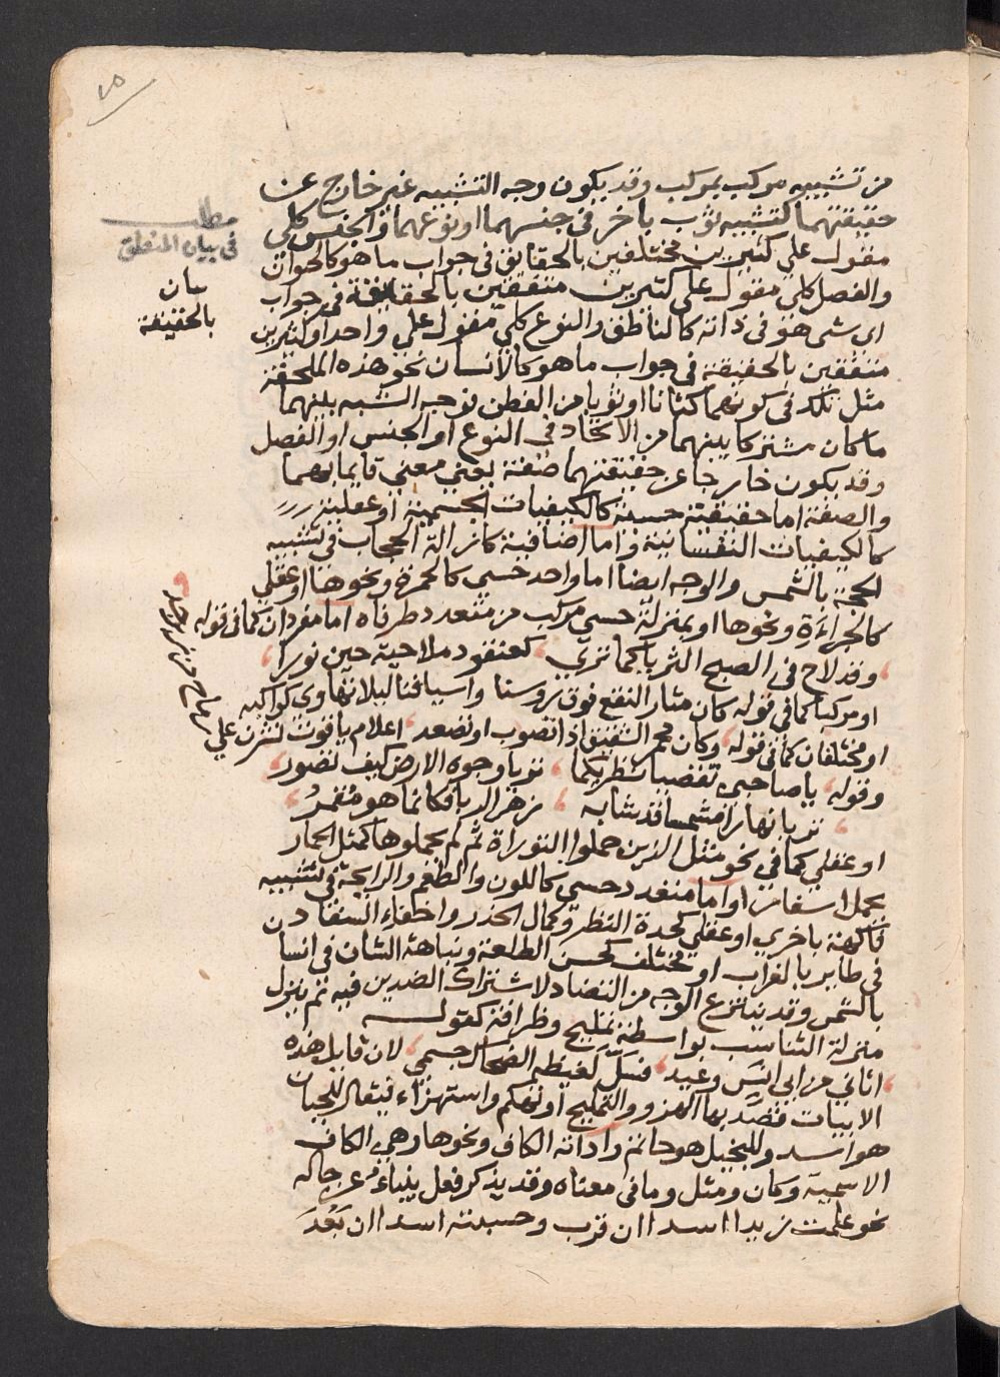 ٢٥
من تشبيه مركب بمركب وقد يكون وجه التشبيه غير خارج عن
حقيقتهما كتشبيه ثوب باخر في جنسهما او نوعهما والجنس كلي
مقول على كثيرين مختلفين بالحقائق في جواب ما هو كالحيوان
والفصل كلي مقول على كثيرين متفقين بالحقيقة في جواب
اي شي هو في ذاته كالناطق والنوع كلي مقول على واحد او كثيرين
متفقين بالحقيقة في جواب ما هو كالانسان نحو هذه الملحفة
مثل تلك في كونهما كتانا او ثوبا من القطن فوجه الشبه بينهما
ما كان مشتركا بينهما من الاتحاد في النوع او الجنس او الفصل
وقد يكون خارجا عن حقيقتهما صفة يعني معنى قايما بهما
والصفة اما حقيقية حسية كالكيفيات الجسمية او عقلية
كالكيفيات النفسانية واما اضافية كازالة الحجاب في تشبيه
الحجة بالشمس والوجه ايضا اما واحد حسي كالحمرة ونحوها او عقلي
كالجراءة ونحوها او بمنزلة حسي مركب من متعدد طرفاه اما مفردان كما في قوله
وقد لاح في الصبح الثريا كما ترى كعنقود ملاحية حين نورا
او مركبا كما في قوله كان مثار النقع فوق روسنا واسيافنا ليلا تهاوى كواكبه
او مختلفان كما في قوله وكان محمر الشقيق اذا تصوب او تصعد اعلام ياقوت نشرن على
رماح من زبرجد
وقوله يا صاحبي تقصيا نظريكما تريا وجوه الارض كيف تصور
تريا نهارا مشمسا قد شابه زهر الربا فكانما هو مقمر
او عقلي كما في نحو مثل الذين حملوا التوراة ثم لم يحملوها كمثل الحمار
يحمل اسفارا او اما متعدد حسي كاللون والطعم والرايحة في تشبيه
فاكهة باخرى او عقلي كحدة النظر وكمال الحذر واخفاء السفاد
في طاير بالغراب او مختلف كحسن الطلعة ونباهة الشان في انسان
بالشمس وقد ينتزع الوجه من التضاد لاشتراك الضدين فيه ثم ينزل
منزلة التناسب بواسطة تمليح وظرافة كقوله
اتاني من ابي انس وعيد فسل لغيظه الضحاك جسمي لان قايل هذه
الابيات قصد بها الهزو والتمليح او تهكم واستهزاء فيقال للجبان
هو اسد وللبخيل هو حاتم واداته الكاف ونحوها وهي الكاف
الاسمية وكان ومثل وما في معناه وقد يذكر فعل ينباء عن حاله
نحو علمت زيدا اسدا ان قرب وحسبته اسدا ان بعد
مطلب
في بيان المنطق
بيان
بالحقيقة